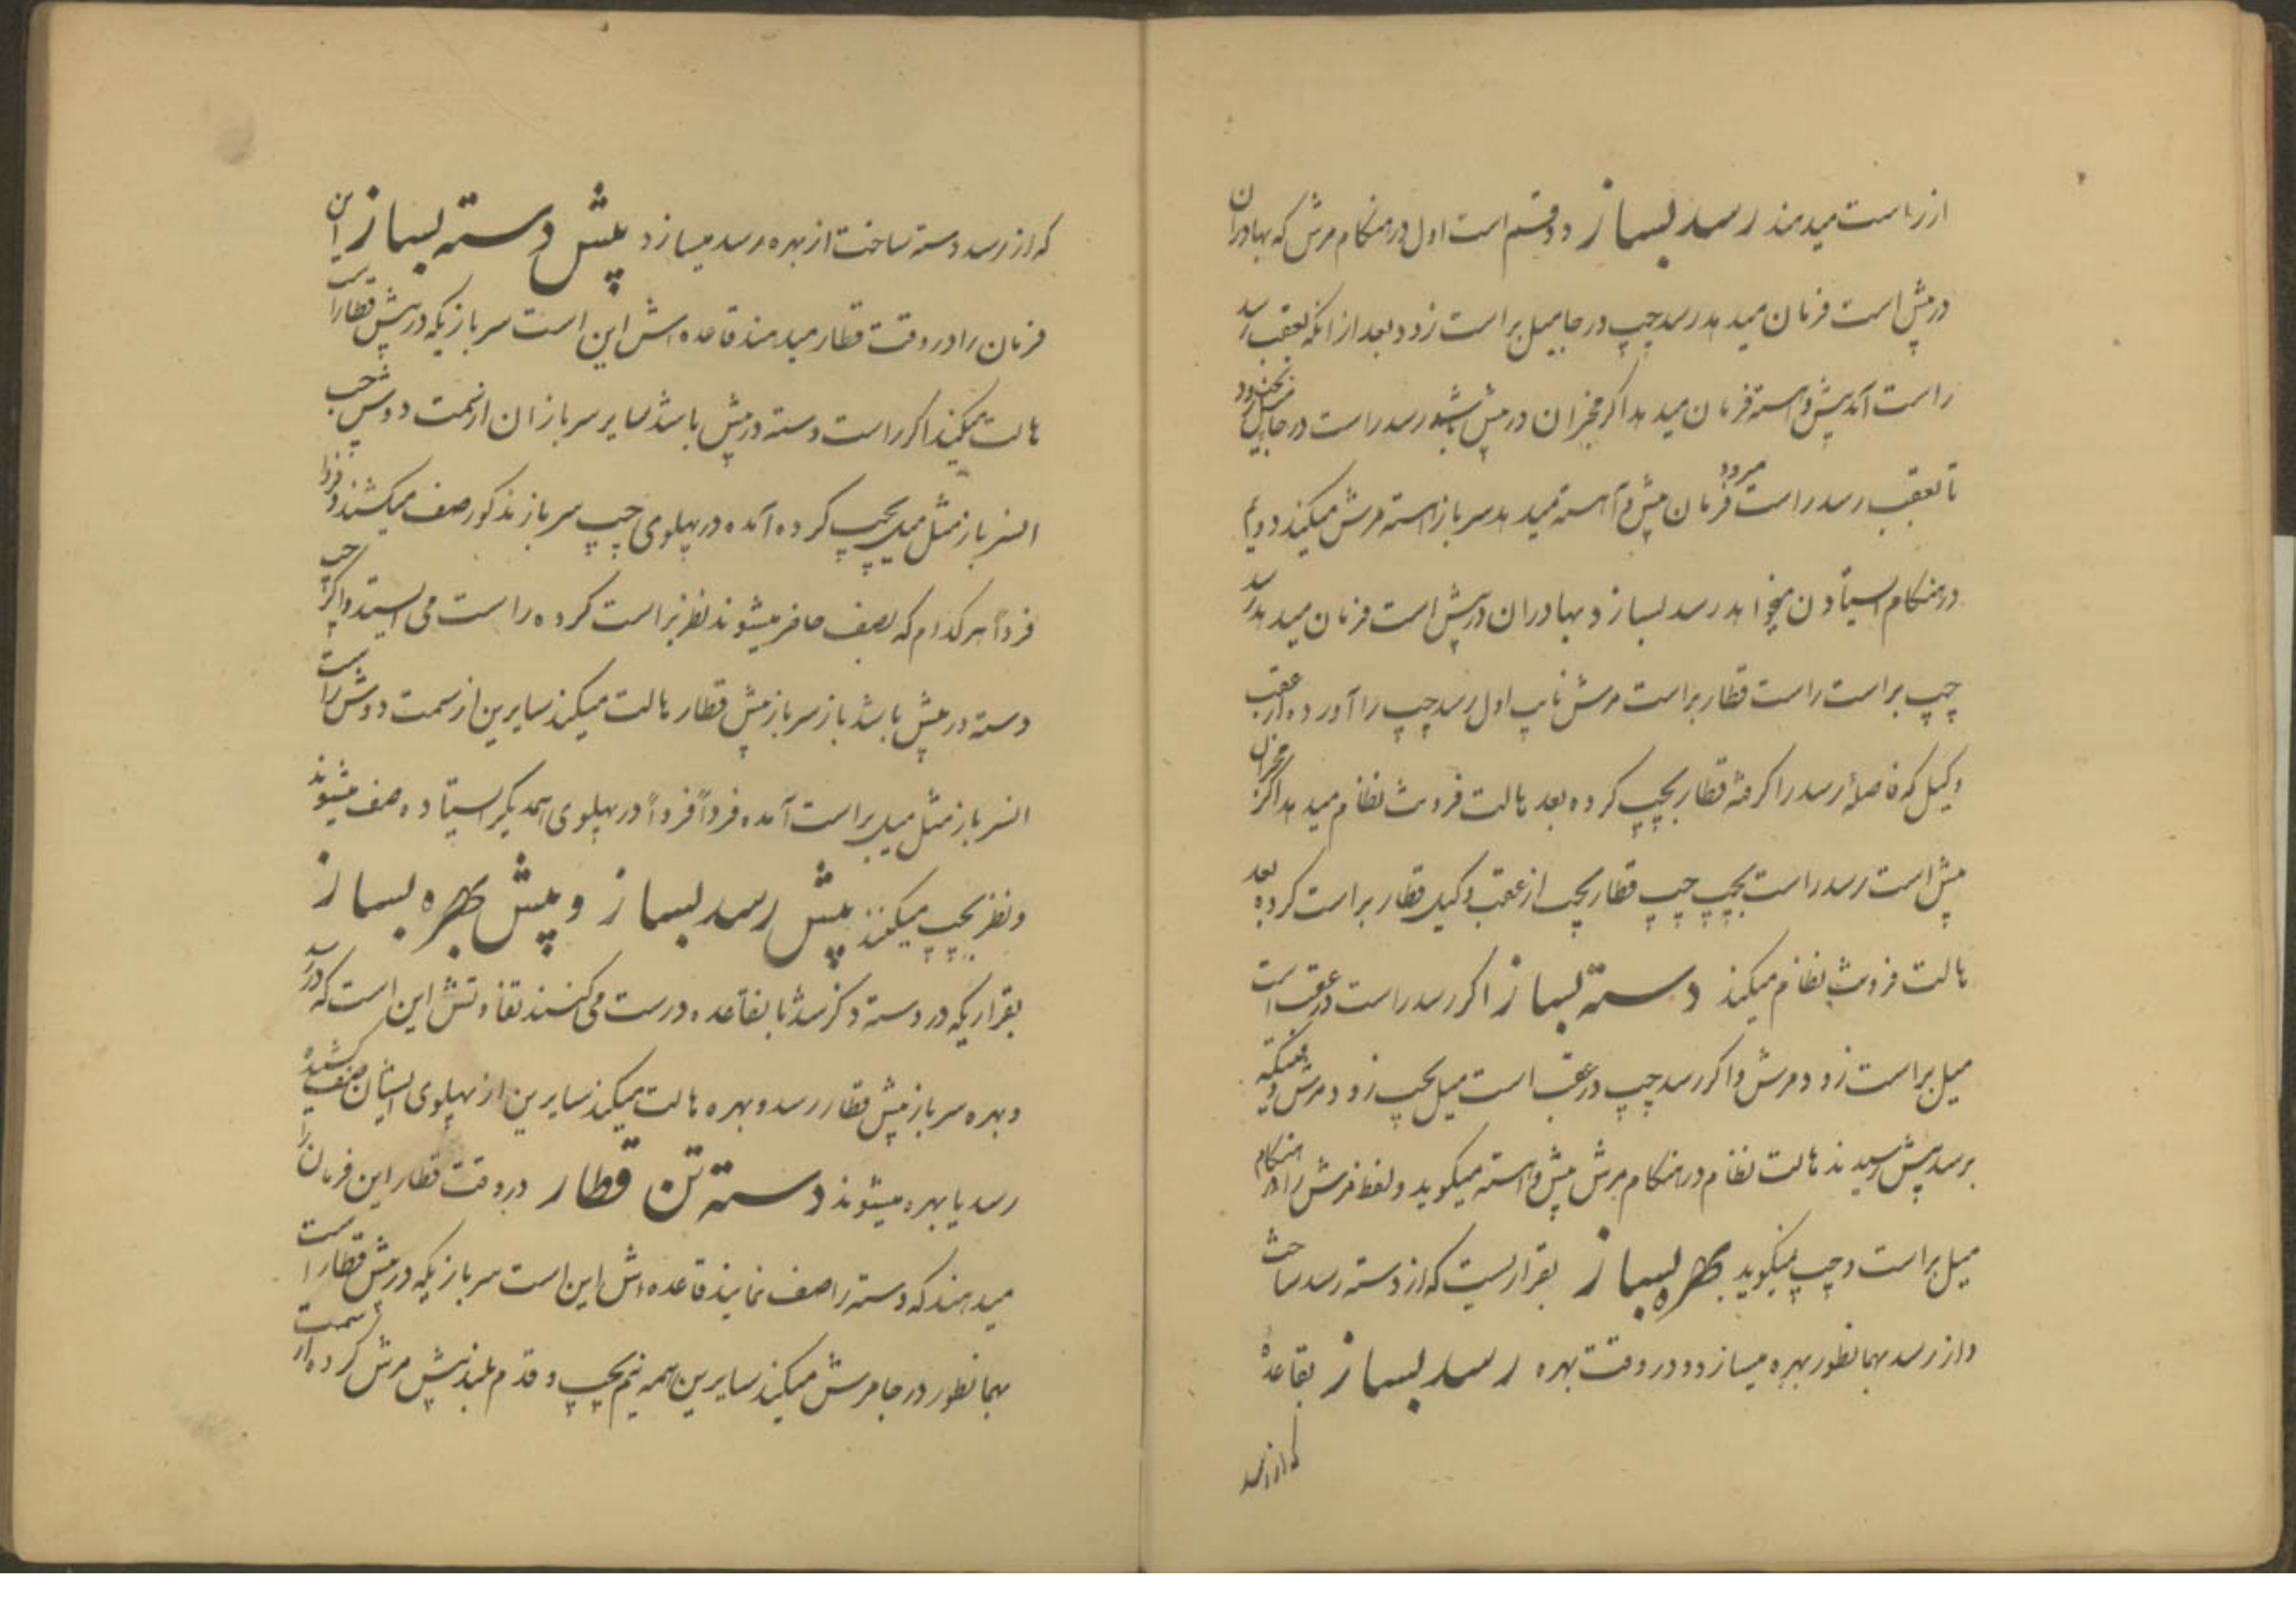 از راست میدهند رسد بساز دو قسم است اول در هنگام مرش که بهادران
در پیش است فرمان میدهد رسد چپ در جا میل براست زود و بعد از آنکه بعقب رسد
راست آمد پیش و آهسته فرمان میدهد اگر مخبران در پیش رسد راست در جا میل بچپ زود
تا بعقب رسد راست میرود فرمان پیش و آهسته میدهد سرباز آهسته مرش میکند دویم
در هنگام ایستادن میخواهد رسد بسازد بهادران در پیش است فرمان میدهد رسد
چپ براست راست قطار براست مرش نایب اول رسد چپ را آورده از عقب
وکیل که فاصلهٔ رسد را گرفته قطار بچپ کرده بعد هالت فرونت نظام میدهد اگر مخبران
پیش است رسد راست بچپ چپ قطار بچپ از عقب وکیل قطار براست کرده بعد
هالت فرونت نظام میکند دسته بساز اگر رسد راست در عقب است
میل براست زود مرش و اگر رسد چپ در عقب است میل بچپ زود مرش وقتیکه
برسد پیش رسیدند هالت نظام در هنگام مرش پیش و آهسته میگوید و لفظ مرش را در هنگام
میل براست و چپ میگوید بهره بساز بقراریست که از دسته رسد ساخت
و از رسد بهمانطور بهره میسازد و در وقت بهره رسد بساز بقاعدهٔ
که از رسد
که از رسد دسته ساخت از بهره رسد میسازد پیش دسته بساز این
فرمان را در وقت قطار میدهند قاعده اش این است سربازیکه در پیش قطار است
هالت میکند اگر راست دسته در پیش باشد سایر سربازان از سمت دوش چپ
السرباز مثل میل بچپ کرده آمده در پهلوی چپ سرباز مذکور صف میکشند و فرداً
فرداً هر کدام که بصف حاضر میشوند نظر براست کرده راست می ایستند و اگر چپ
دسته در پیش باشد باز سرباز پیش قطار هالت میکند سایرین از سمت دوش راست
السرباز مثل میل براست آمده فرداً فرداً در پهلوی همدیگر ایستاده صف میشوند
و نظر بچپ میکنند پیش رسد بساز و پیش بهره بساز
بقراریکه در دسته ذکر شد بانقاعده درست می کنند تفاوتش این است که در رسد
و بهره سرباز پیش قطار رسد و بهره هالت میکند سایرین از پهلوی ایشان صف کشیده
رسد یا بهره میشوند دسته تن قطار در وقت قطار این فرمان را
میدهند که دسته را صف نمایند قاعده اش این است سربازیکه در پیش قطار است
بهمانطور در جا مرش میکند سایرین همه نیم بچپ و قدم بلند پیش مرش کرده از سمت